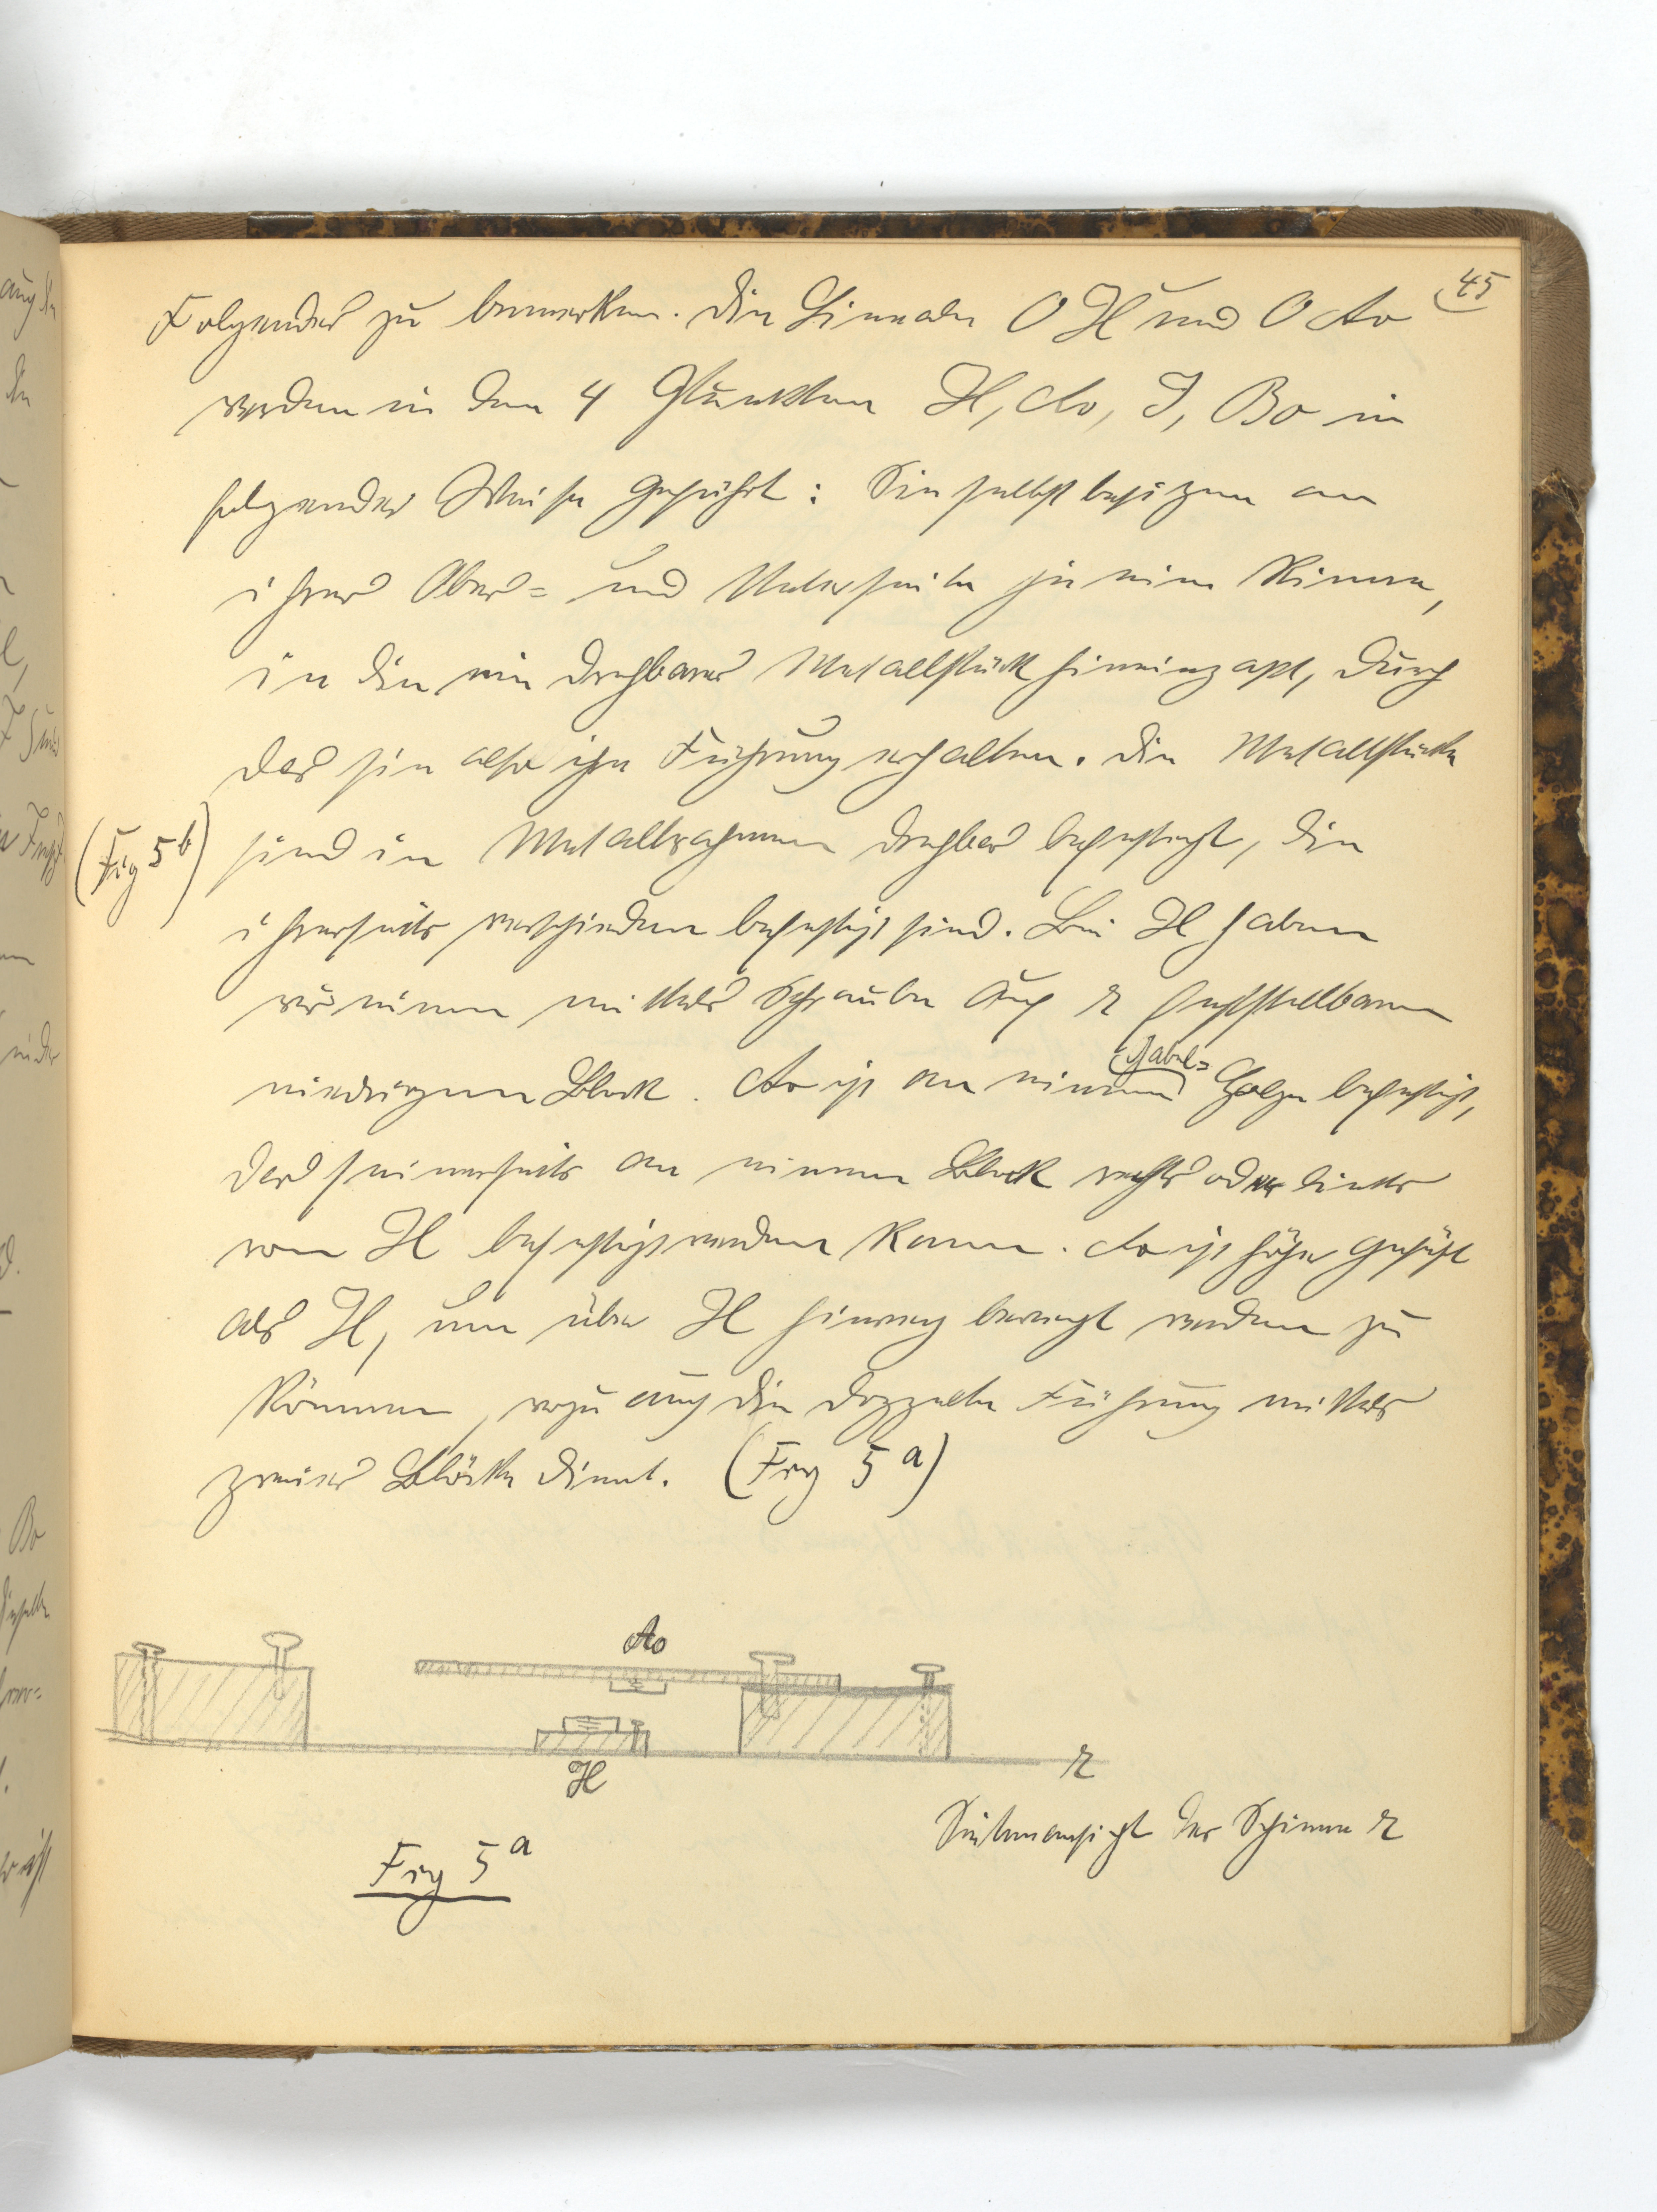 45
Folgendes zu bemerken. Die Lineale O H und O Ao
werden in den 4 Punkten H, Ao, J, Bo in
folgender Weise geführt: Sie selbst besitzen an
ihrer Ober= und Unterseite je eine Rinne,
in die ein drehbares Metallstück hineinragt, durch
das sie also ihre Führung erhalten. Die Metallstücke
(Fig 5b)
sind in Metallrahmen drehbar befestigt, die
ihrerseits verschieden befestigt sind. Bei H haben
wir einen mittels Schraube auf r feststellbaren
niedrigen Block. Ao ist an einem
Gabel=
befestigt,
der seinerseits an einem Block rechts oder links
von H befestigt werden kann. Ao ist höher geführt
als H, um über H hinweg bewegt werden zu
können, wozu auch die doppelte Führung mittels
zweier Blöcke dient. (Fig 5a)
Ao
H
r
Seitenansicht der Schiene r
Fig 5a